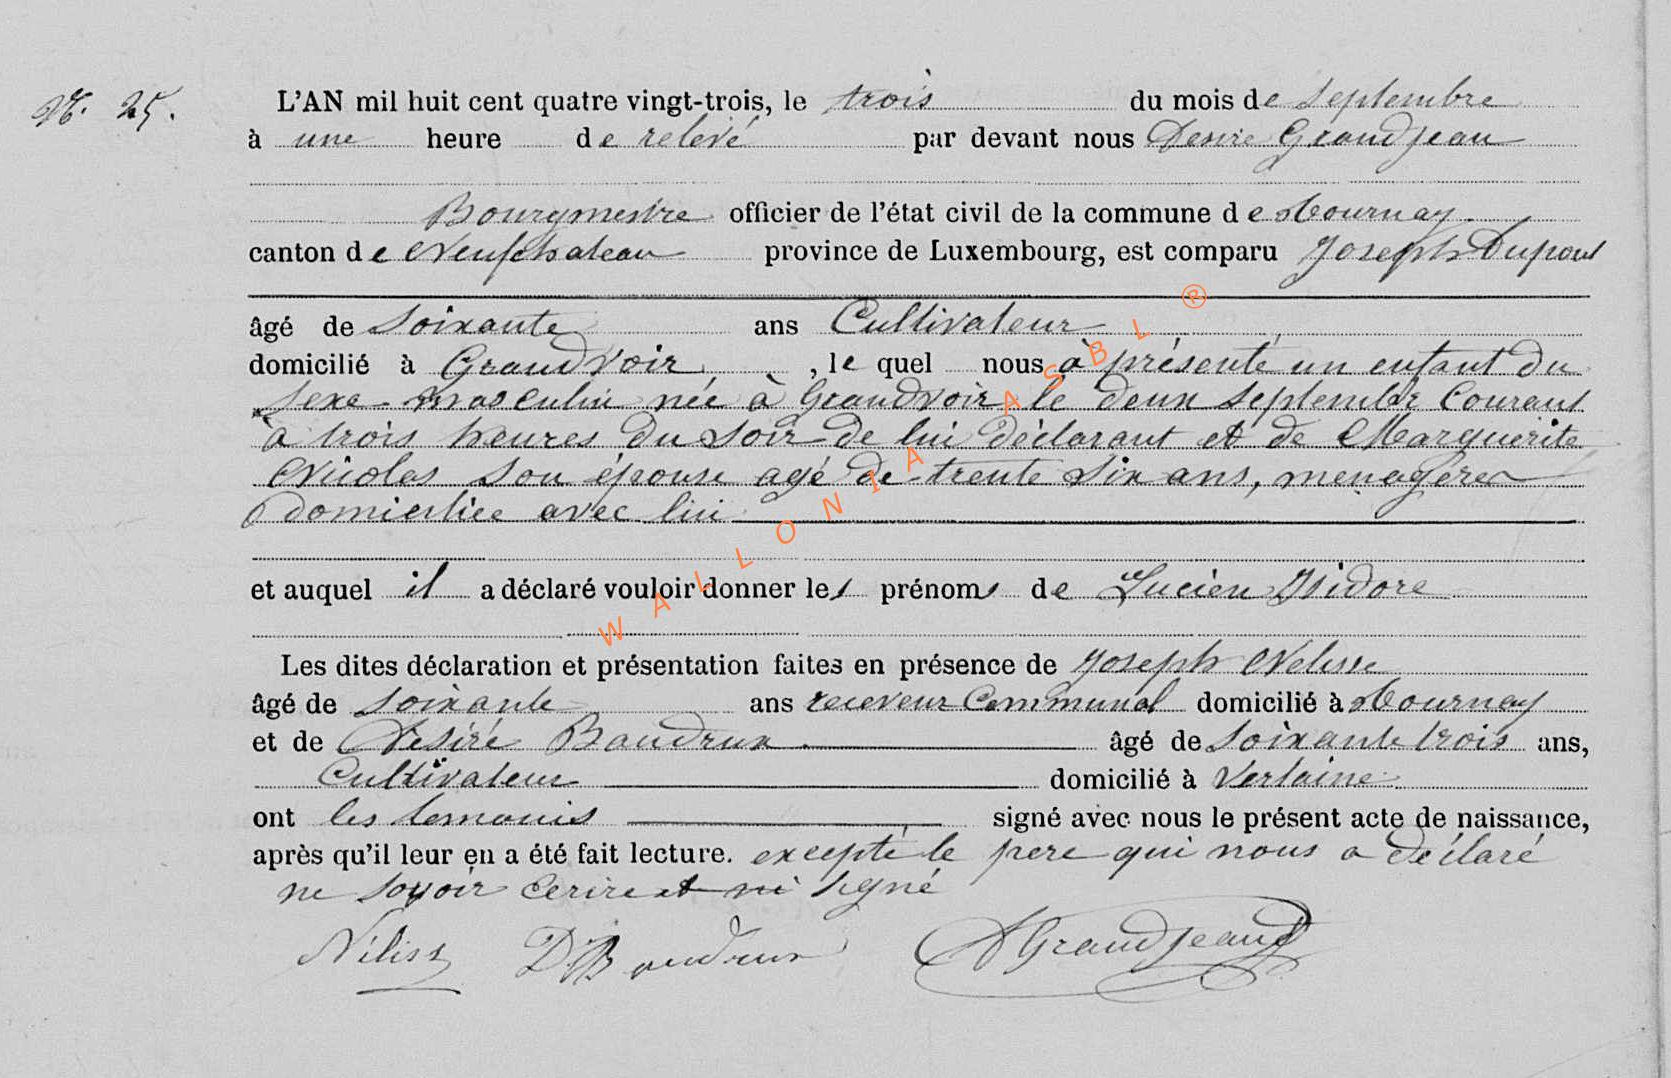 N°. 25.
L'AN mil huit cent quatre vingt-trois, le trois du mois de Septembre
à une heure de relevé par devant nous Desiré Grandjean
Bourgmestre officier de l'état civil de la commune de Tournay.
canton de Neufchateau province de Luxembourg, est comparu Joseph Dupont
âgé de Soixante ans Cultivateur
domicilié à Grandvoir, le quel nous à présenté un enfant du
sexe masculin née à Grandvoir le deux Septembre Courant
à trois heures du Soir de lui déclarant et de Marguerite
Nicolas son épouse agé de trente six ans, menagére
domiciliée avec lui
et auquel il a déclaré vouloir donner les prénoms de Lucien Isidore
Les dites déclaration et présentation faites en présence de Joseph Nelisse
âgé de soixante ans receveur Communal domicilié à Tournay
et de Désiré Baudrux. âgé de soixante trois ans,
Cultivateur domicilié à Verlaine
ont les temouis signé avec nous le présent acte de naissance,
après qu'il leur en a été fait lecture. excepté le pere qui nous a déclaré
ne savoir ecrire et ni signé
Néliss D. Baudrux DGrandjean
WALLONIA ASBL ®